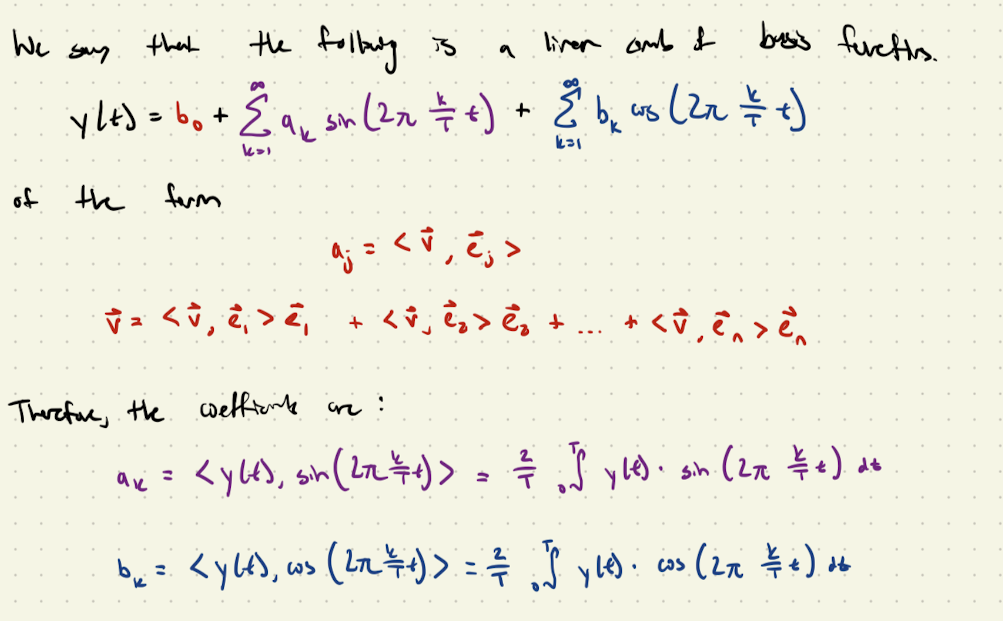 We say that the following is a linear comb of basis functions.
y(t) = b₀ + ∑_{k=1}^{∞} a_k sin(2π k/T t) + ∑_{k=1}^{∞} b_k cos(2π k/T t)
of the form
a_j = <v⃗, e⃗_j>
v⃗ = <v⃗, e⃗₁> e⃗₁ + <v⃗, e⃗₂> e⃗₂ + ... + <v⃗, e⃗_n> e⃗_n
Therefore, the coefficients are:
a_k = <y(t), sin(2π k/T t)> = 2/T ₀∫ᵀ y(t) · sin(2π k/T t) dt
b_k = <y(t), cos(2π k/T t)> = 2/T ₀∫ᵀ y(t) · cos(2π k/T t) dt